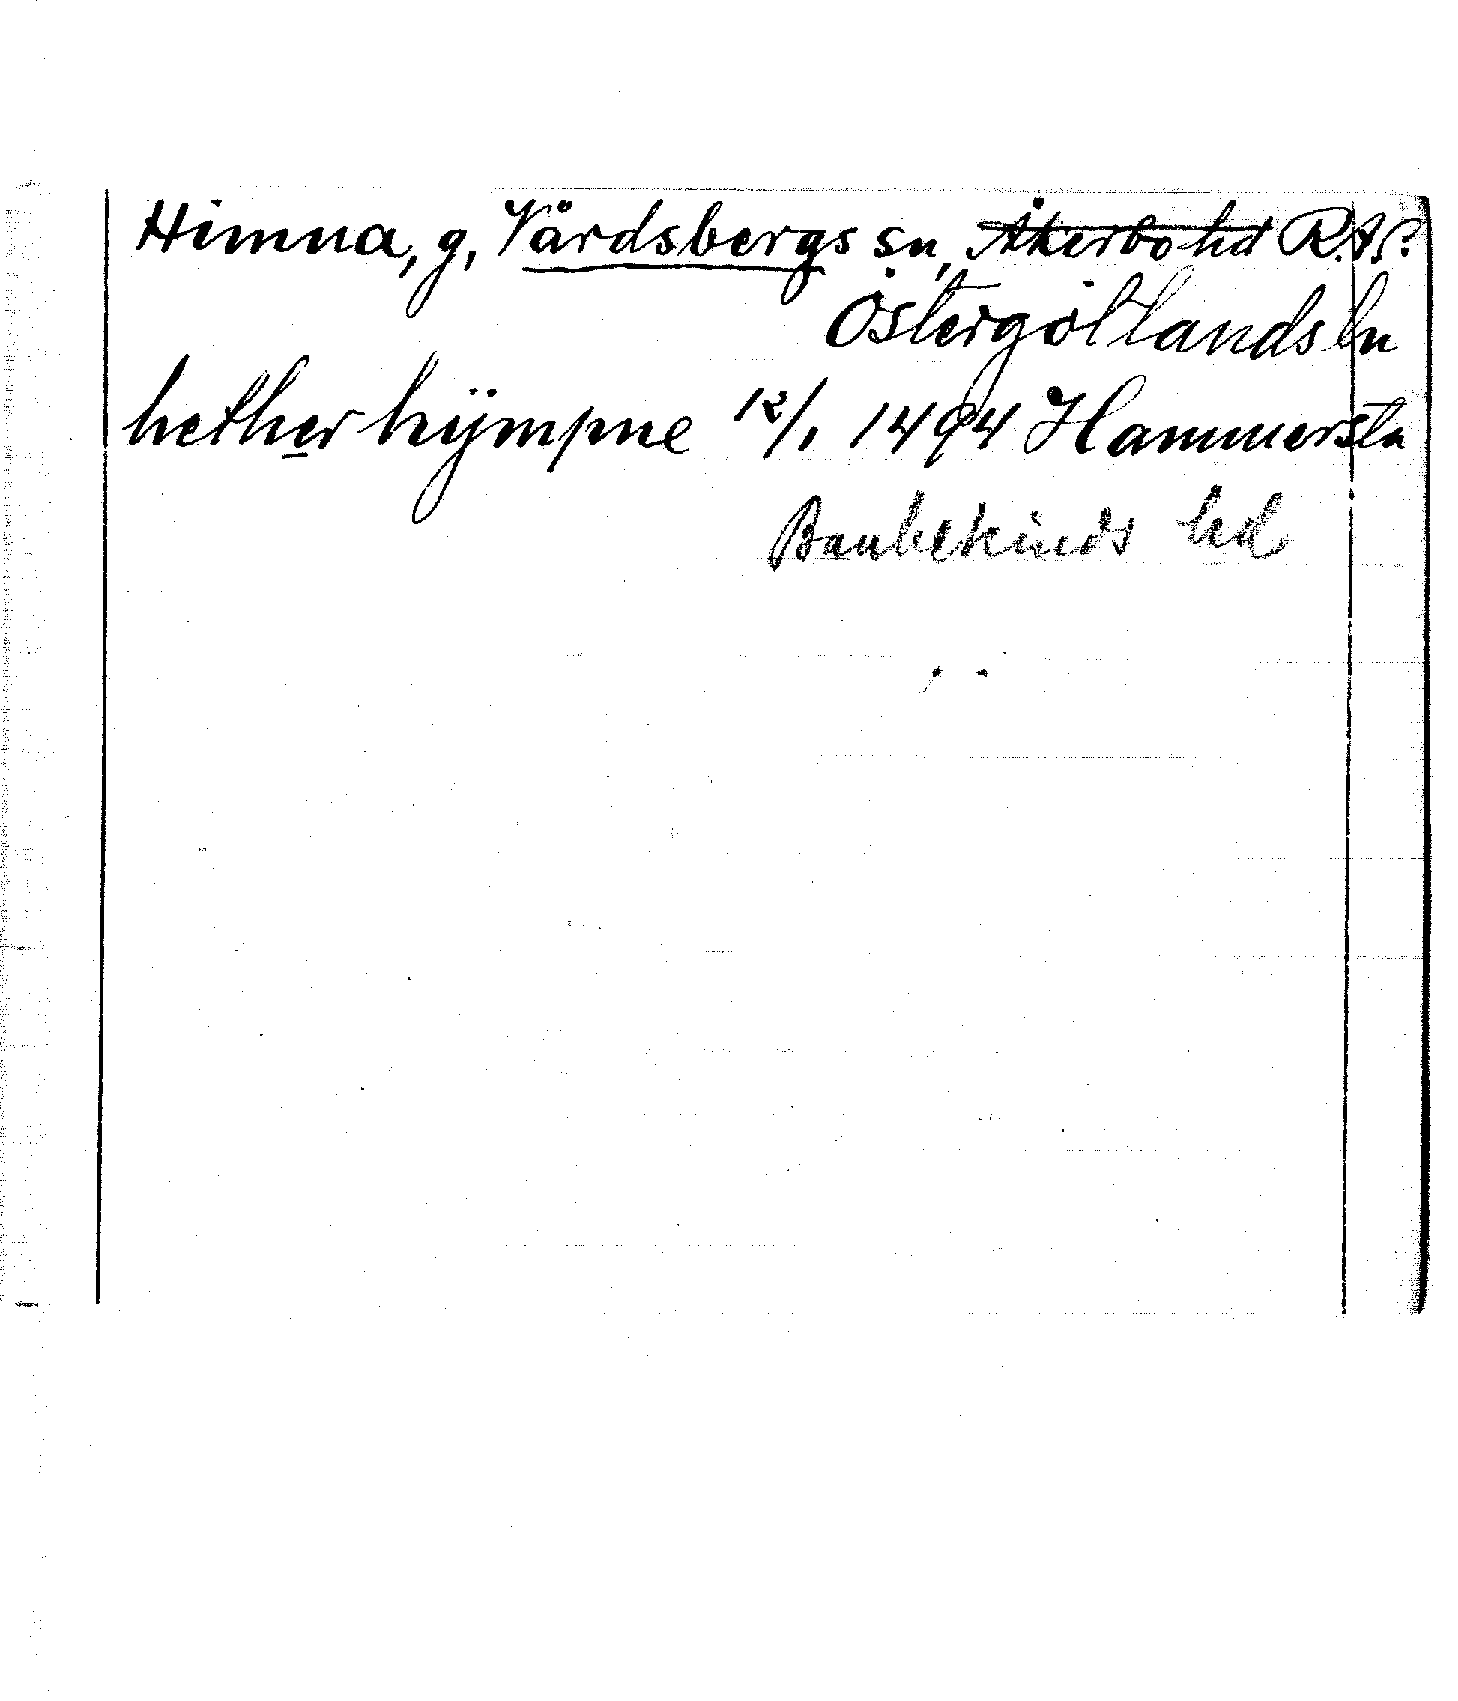 Himna, g, Vårdsbergs sn, Åkerbo hd R.A.P.
Östergötlands ln
hether hÿmpne 12/1 1494 Hammersta
Bankekinds hd